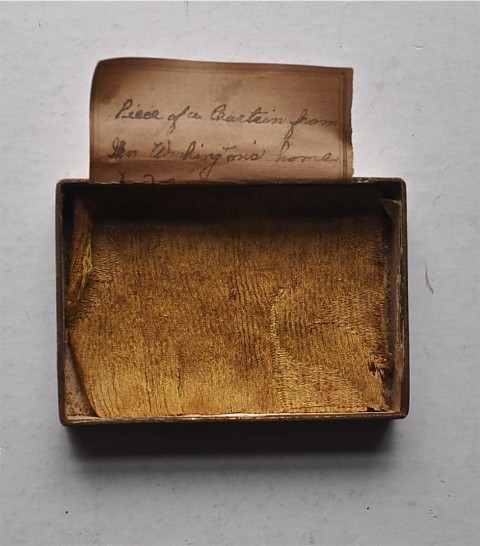 Piece of a Curtain from
Gen Washington's home